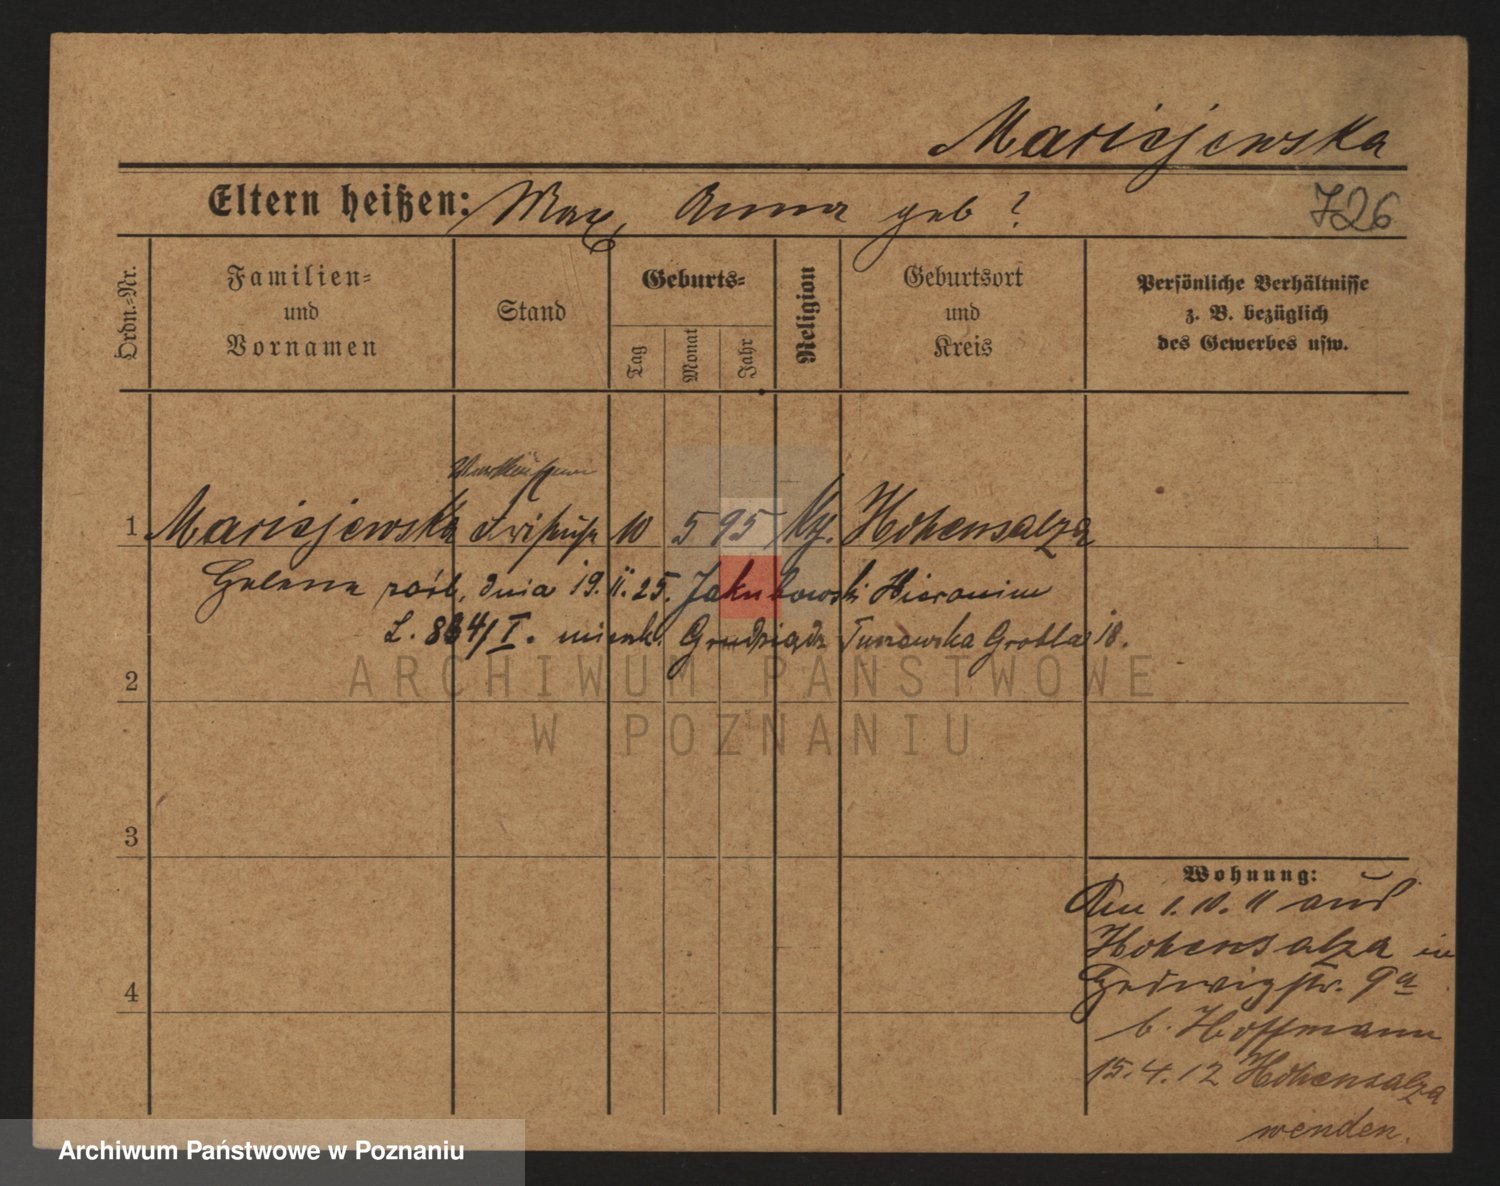 Marisjewska
Eltern heißen: Max, Anna geb ?
726
Ordn.-Nr.
Familien-
und
Vornamen
Stand
Geburts-
Tag
Monat
Jahr
Religion
Geburtsort
und
Kreis
Persönliche Verhältnisse
z. B. bezüglich
des Gewerbes usw.
1 Marisjewska 10 5 95 Hohensalza
Helena dnia 19. II. 25. Jakubowski Hieronim
L. 884/I. mieszk. Grudziądz Grobla 18.
2
ARCHIWUM PAŃSTWOWE
W POZNANIU
3
4
Wohnung:
Am 1. 10. 11 aus
Hohensalza in
Hedwigstr. 9a
b. Hoffmann
15. 4. 12 Hohensalza
wenden.
Archiwum Państwowe w Poznaniu